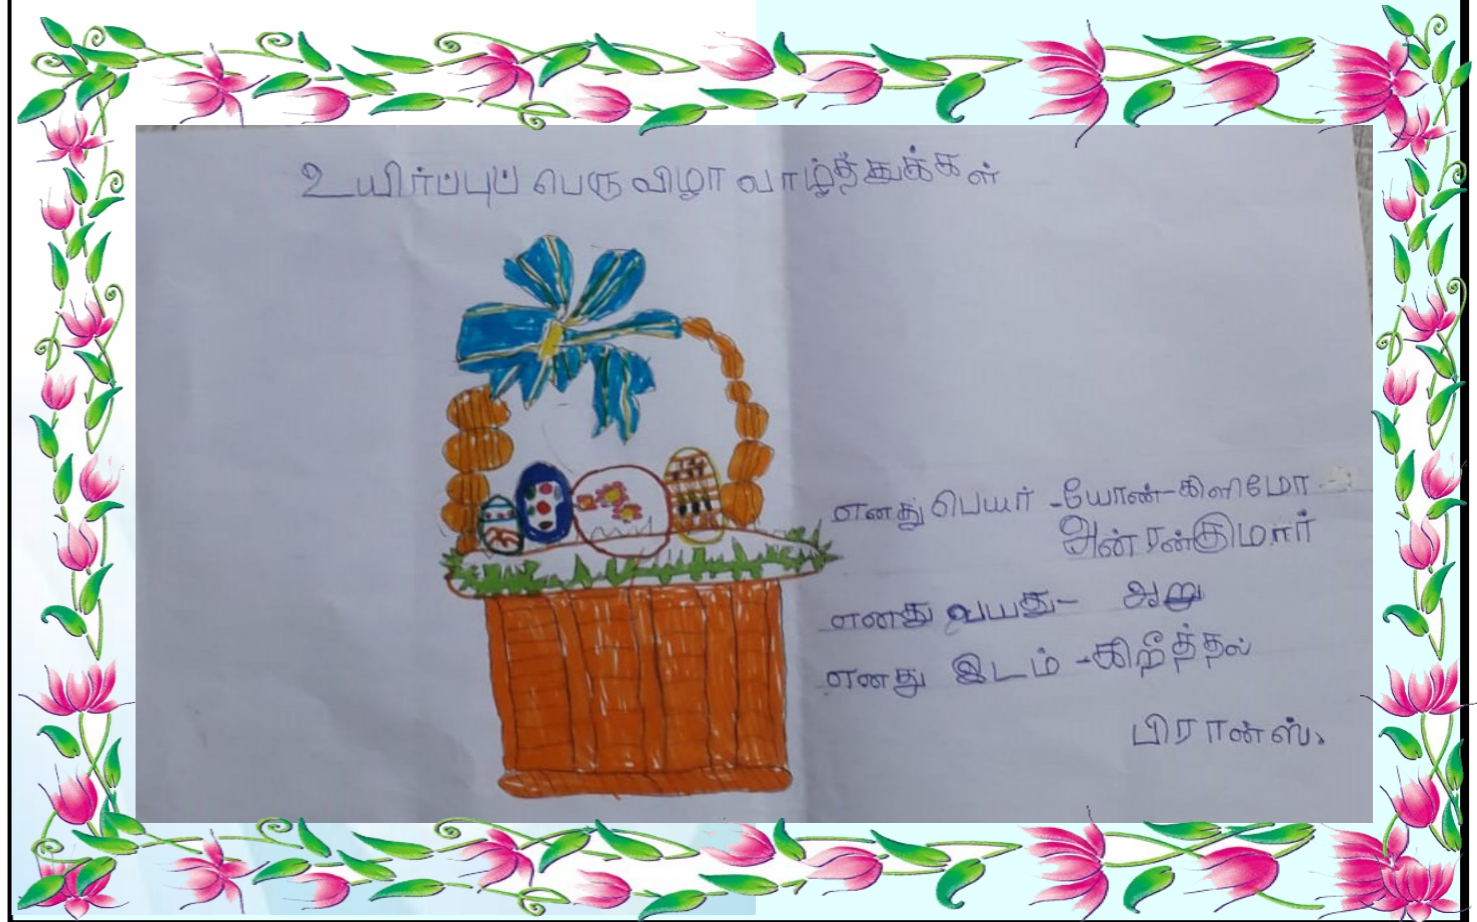 உயிர்ப்புப் பெருவிழா வாழ்த்துக்கள்
எனது பெயர் - யோண்-கிளிமோ
அன்ரன்குமார்
எனது வயது-
எனது இடம் - கிறீத்தல்
பிரான்ஸ்.